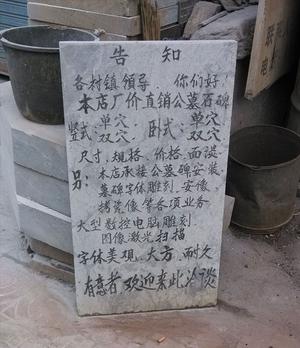 告知
各村镇领导 你们好！
本店厂价直销公墓石碑
竖式：单穴 双穴 卧式：单穴 双穴
尺寸、规格、价格、面谈
另：本店承接公墓碑安装
墓碑字体雕刻、安像、
拷瓷像等各项业务
大型数控电脑雕刻
图像激光扫描
字体美观、大方、耐久
有意者，欢迎来此洽谈